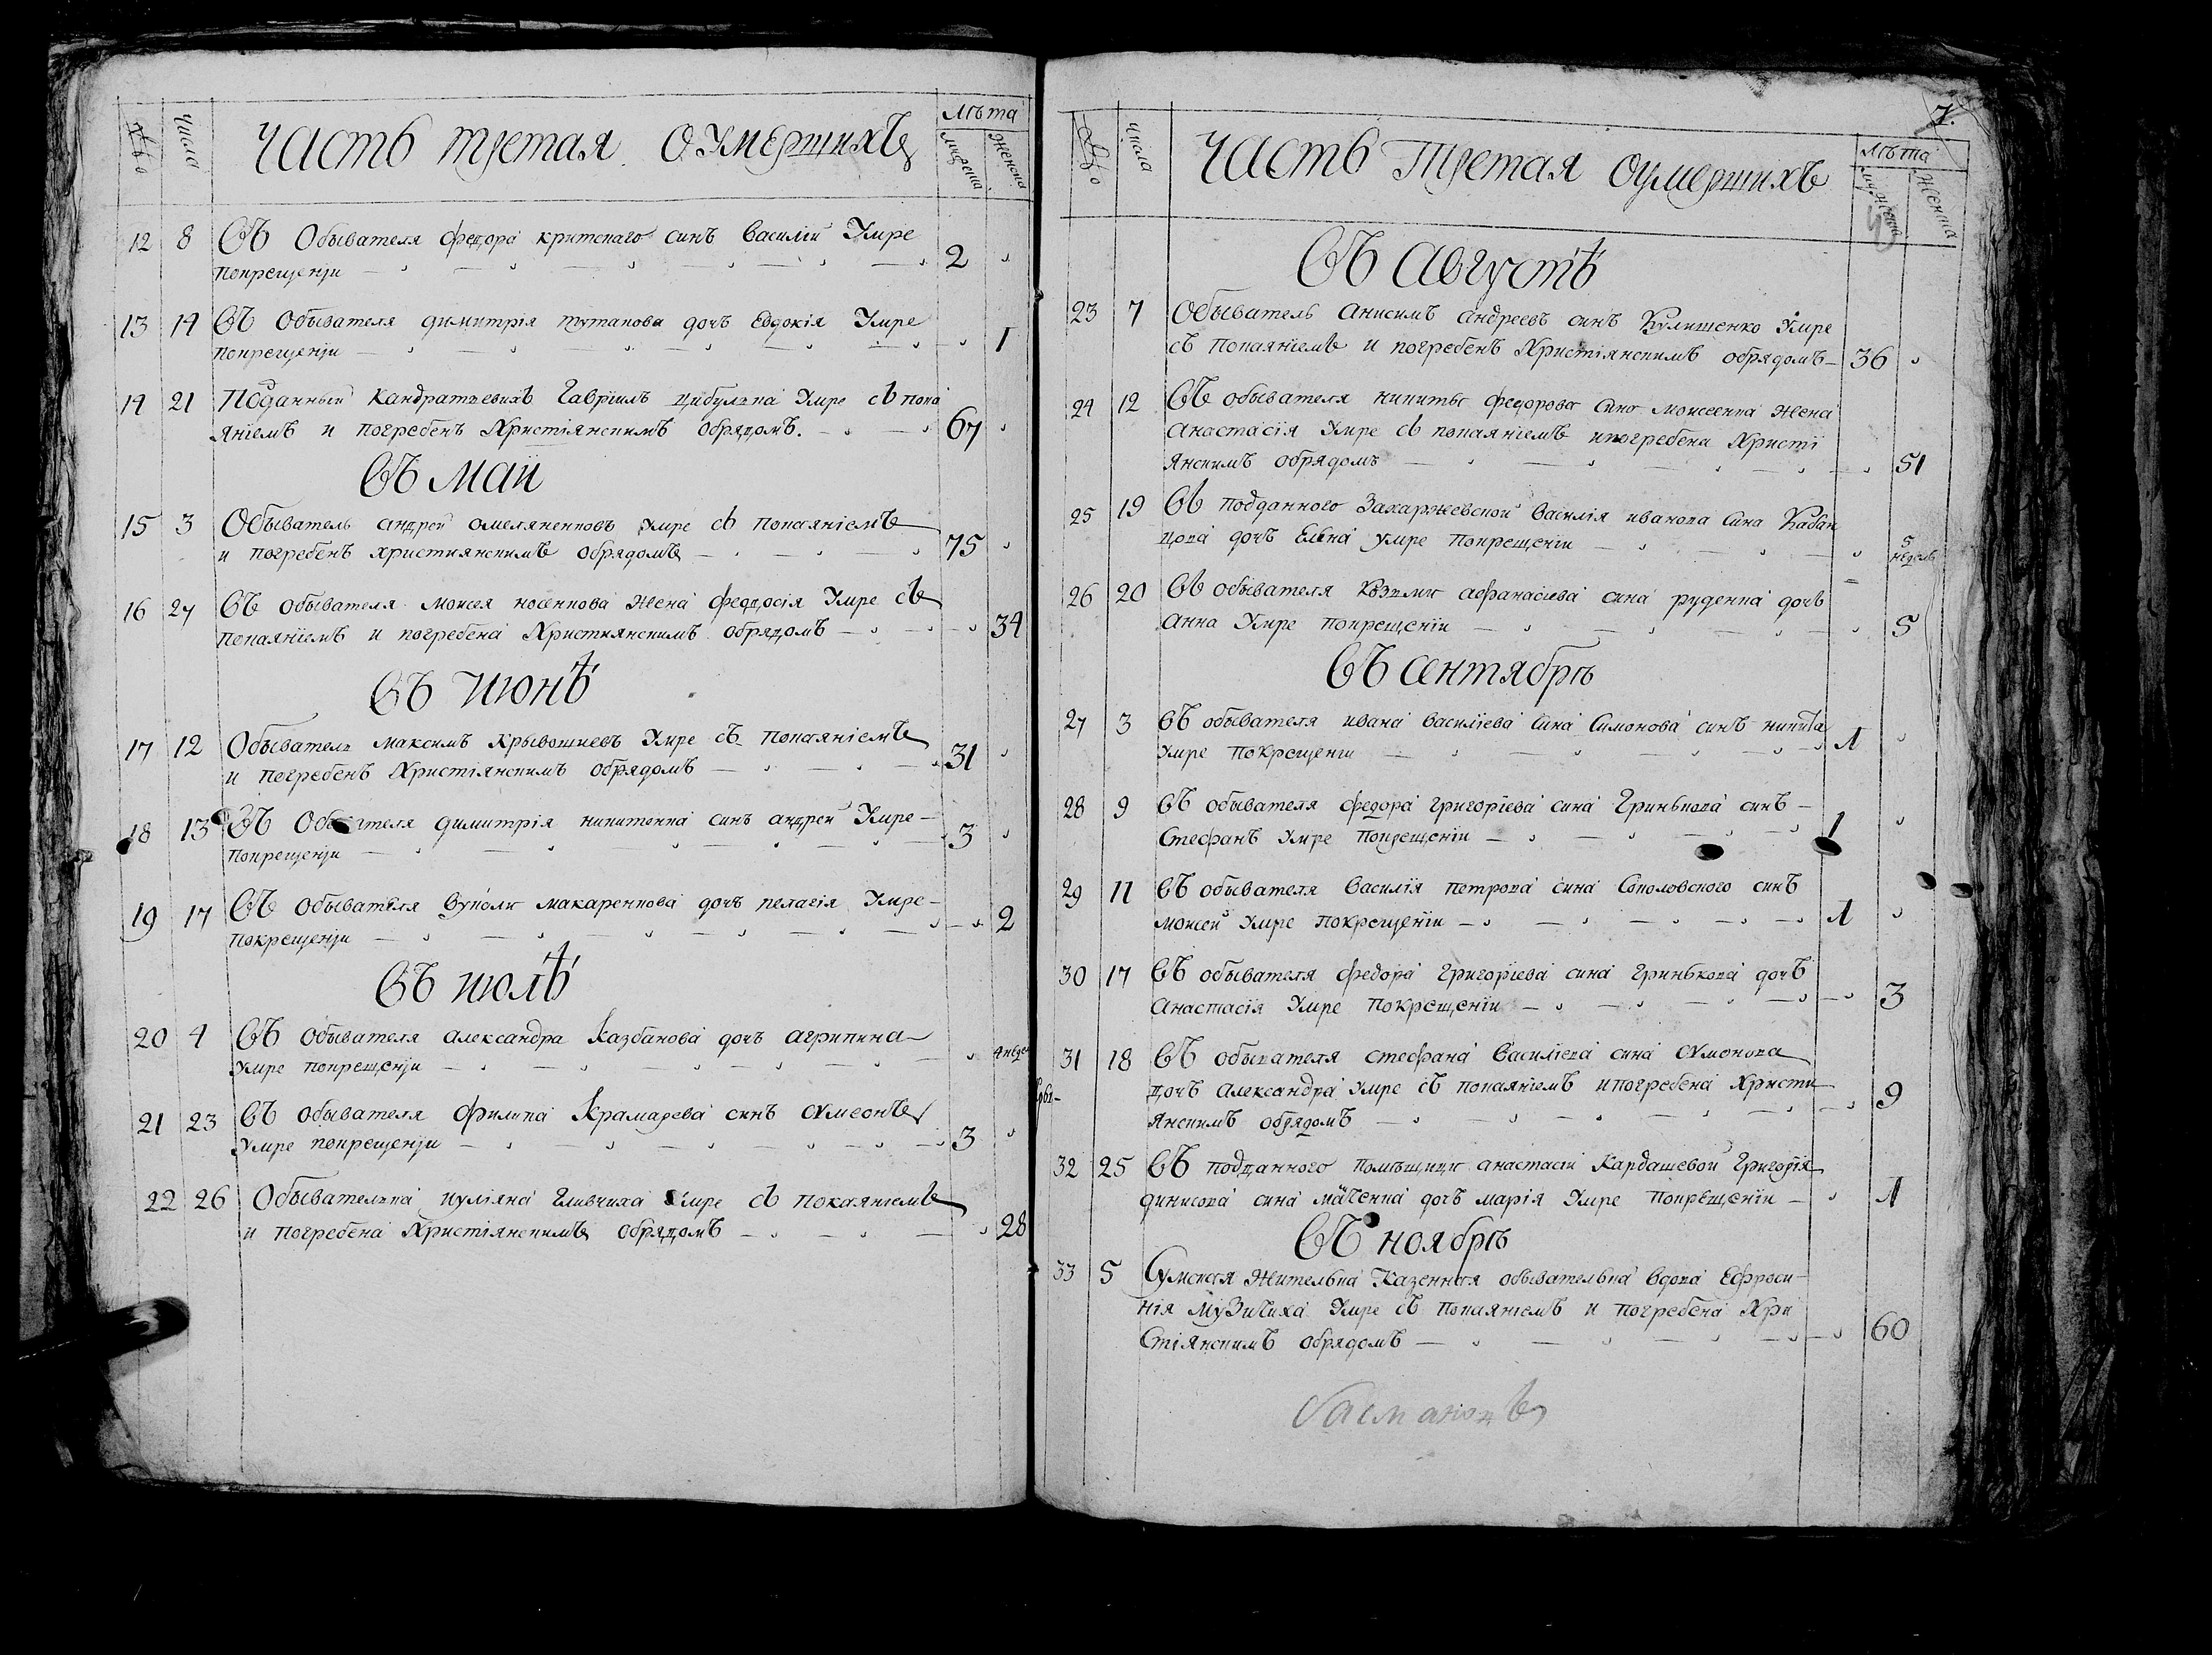 №
Числа
Часть третая О Умершихъ
Лѣта
мужеска
женска
12 8 Въ Обывателя федора критскаго синъ василій Умре
покрещенји 2
13 14 Въ Обывателя димитрія дочъ Евдокія Умре
покрещенји 1
14 21 Подданный Кандратьевихъ Гавріилъ цибулька Умре съ пока
яніемъ и погребенъ Христіянскимъ Обрядомъ. 67
Въ Маи
15 3 Обыватель андрей омеляненковъ умре съ покаяніемъ
и погребенъ християнскимъ обрядомъ 75
16 27 Въ обывателя моисея носенкова жена феодосія Умре съ
покаяніемъ и погребена Християнскимъ обрядомъ 34
Въ июнѣ
17 12 Обыватель максимъ Крывошиевъ Умре съ покаяніемъ
и погребенъ Христіянскимъ обрядомъ 31
18 13 Въ Обывателя димитрія никитенка синъ андрей Умре
покрещенји 3
19 17 Въ обывателя вуколы макаренкова дочъ пелагія Умре
покрещенји 2
Въ июлѣ
20 4 Въ обывателя александра Казбанова дочъ агрипина
Умре покрещенји 4 недел
21 23 Въ обывателя филипа Крамарева синъ сумеонъ
Умре покрещенји 3
22 26 Обывателька иуліяна Гливчиха Умре съ покаяніемъ
и погребена Христіянскимъ обрядомъ 28
7.
№
числа
Часть Третая Оумершихъ
лѣта
мужеска
женска
Въ Августѣ
23 7 Обыватель Анисимъ андреевъ синъ Кулишенко Умре
съ Покаяніемъ и погребенъ Христіянскимъ обрядомъ 36
24 12 Въ обывателя никиты федорова сина моисеенка жена
анастасія Умре съ покаяніемъ ипогребена Христі
янскимъ обрядомъ 51
25 19 Въ подданного Захаржевской василія иванова сина Кабан
цова дочъ Елена умре покрещеніи 5
неделъ
26 20 Въ обывателя Козьмы афанасіева сина руденка дочъ
анна Умре покрещеніи 5
Въ сентябрѣ
27 3 Въ обывателя ивана василіева сина Симонова синъ никита
Умре покрещеніи 1
28 9 Въ обывателя федора григоріева сина Гринькова синъ
Стефанъ Умре покрещеніи 1
29 11 Въ обывателя василія петрова сина Соколовского синъ
моисей Умре покрещеніи 1
30 17 Въ обывателя федора григоріева сина гринькова дочъ
анастасія Умре покрещеніи 3
31 18 Въ обывателя стефана василіева сина сумонова
дочъ александра Умре съ покаяніемъ ипогребена Христи
янскимъ обрядомъ 9
32 25 Въ подданного помѣщици анастасіи Кардашевой григорія
динисова сина дочъ марія Умре покрещеніи 1
Въ ноябрѣ
33 5 Сумская жителька Казенная обывателька вдова Ефроси
нія музичиха Умре съ покаяніемъ и погребена Хри
стіянскимъ обрядомъ 60